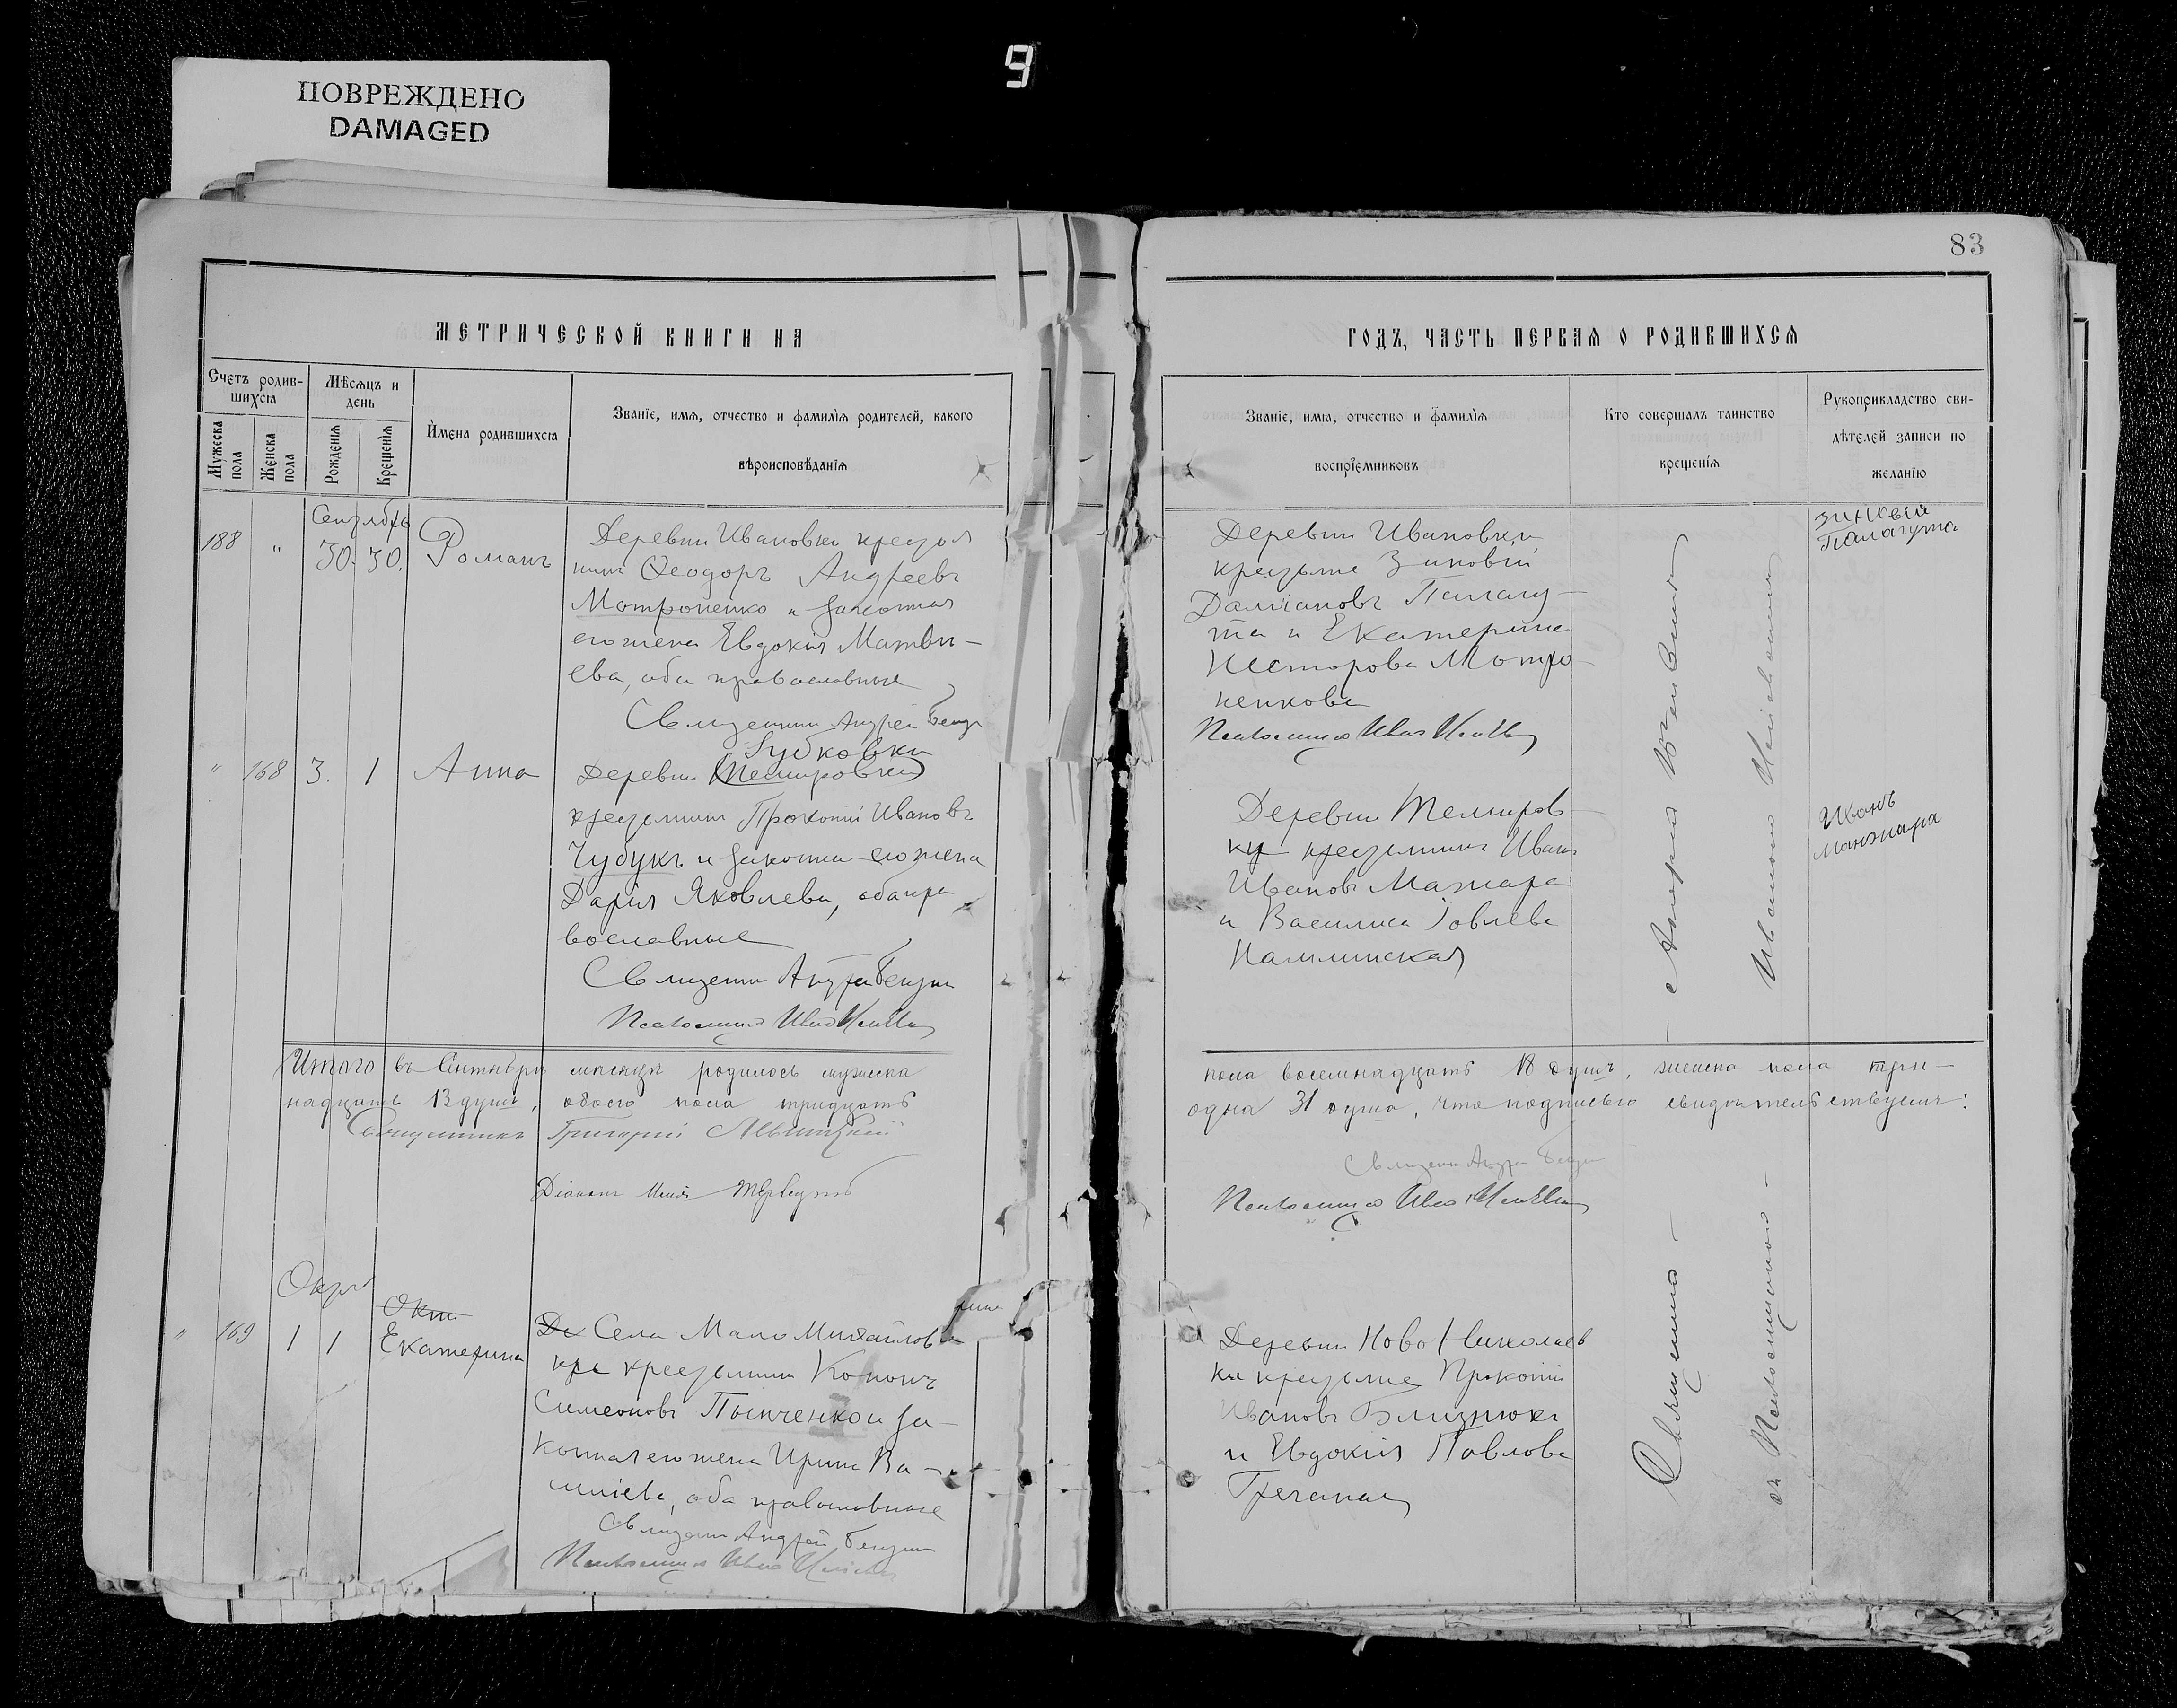 ПОВРЕЖДЕНО
DAMAGED
9
83
МЕТРИЧЕСКОЙ КНИГИ НА
ГОДЪ, ЧАСТЬ ПЕРВАЯ О РОДИВШИХСЯ
Счетъ родив-
шихся
Мужеска пола
Женска пола
Мѣсяцъ и
день
Рожденія
Крещенія
Имена родившихся
Званіе, имя, отчество и фамилія родителей, какого
вѣроисповѣданія
Званіе, имя, отчество и фамилія
воспріемниковъ
Кто совершалъ таинство
крещенія
Рукоприкладство сви-
дѣтелей записи по
желанію
188 "
30. 30.
Романъ
Деревни Ивановки крестья
нинъ Ѳеодоръ Андреевъ
Мотроненко и законная
его жена Евдокія Матвѣ-
ева, оба православные
Священникъ Андрей
Деревни Ивановки
крестьяне Зиновій
Даміановъ Палагу-
та и Екатерина
Несторова Мотро
ненкова
Псаломщикъ Иванъ
Зиновій
Палагута
" 168 3. 1
Анна
Губковки
Деревни Темировки
крестьянинъ Прокопій Ивановъ
Чубукъ и законная его жена
Дарія Яковлева, оба пра
вославные
Священникъ Андрей
Псаломщикъ Иванъ
Деревни Темиров-
ки крестьянинъ Иванъ
Ивановъ Мажара
и Василиса Іовлева
Иванъ
Манжара
Итого въ Сентябрѣ мѣсяцѣ родилось мужеска
пола восемнадцать 18 душъ, женска пола три-
надцать 13 душъ, обоего пола тридцать
одна 31 душа, что подписью свидѣтельствуемъ:
Священникъ Григорій
Діаконъ
Священникъ Андрей
Псаломщикъ Иванъ
Окт
" 169 1 1
Екатерина
Де Села Мало Михайлов
крестьянинъ Кононъ
Симеоновъ Пынченко и за-
конная его жена Ирина Ва-
силіева, оба православные
Священникъ Андрей
Псаломщикъ Иванъ
Деревни Ново Николаев
ки крестьяне Прокопій
Ивановъ Близнюкъ
и Евдокія Павлова
Гречаная
Священникъ
съ Псаломщикомъ